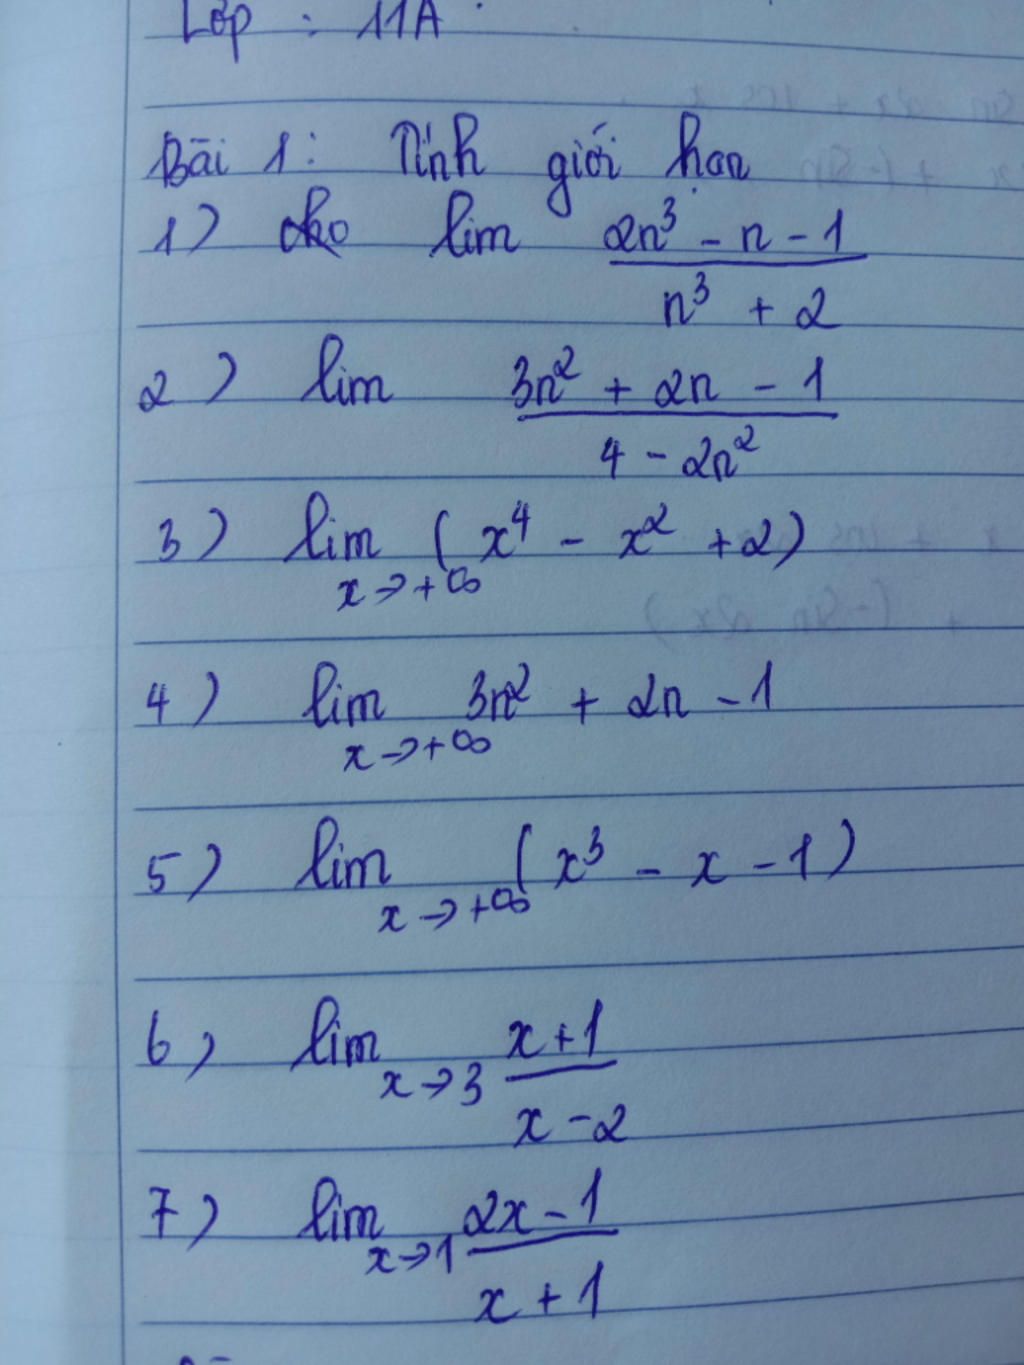 Lớp : 11A
Bài 1: Tính giới hạn
1) cho lim (2n³ - n - 1)/(n³ + 2)
2) lim (3n² + 2n - 1)/(4 - 2n²)
3) lim x→+∞ (x⁴ - x² + 2)
4) lim x→+∞ 3n² + 2n - 1
5) lim x→+∞ (x³ - x - 1)
6) lim x→3 (x+1)/(x-2)
7) lim x→1 (2x-1)/(x+1)